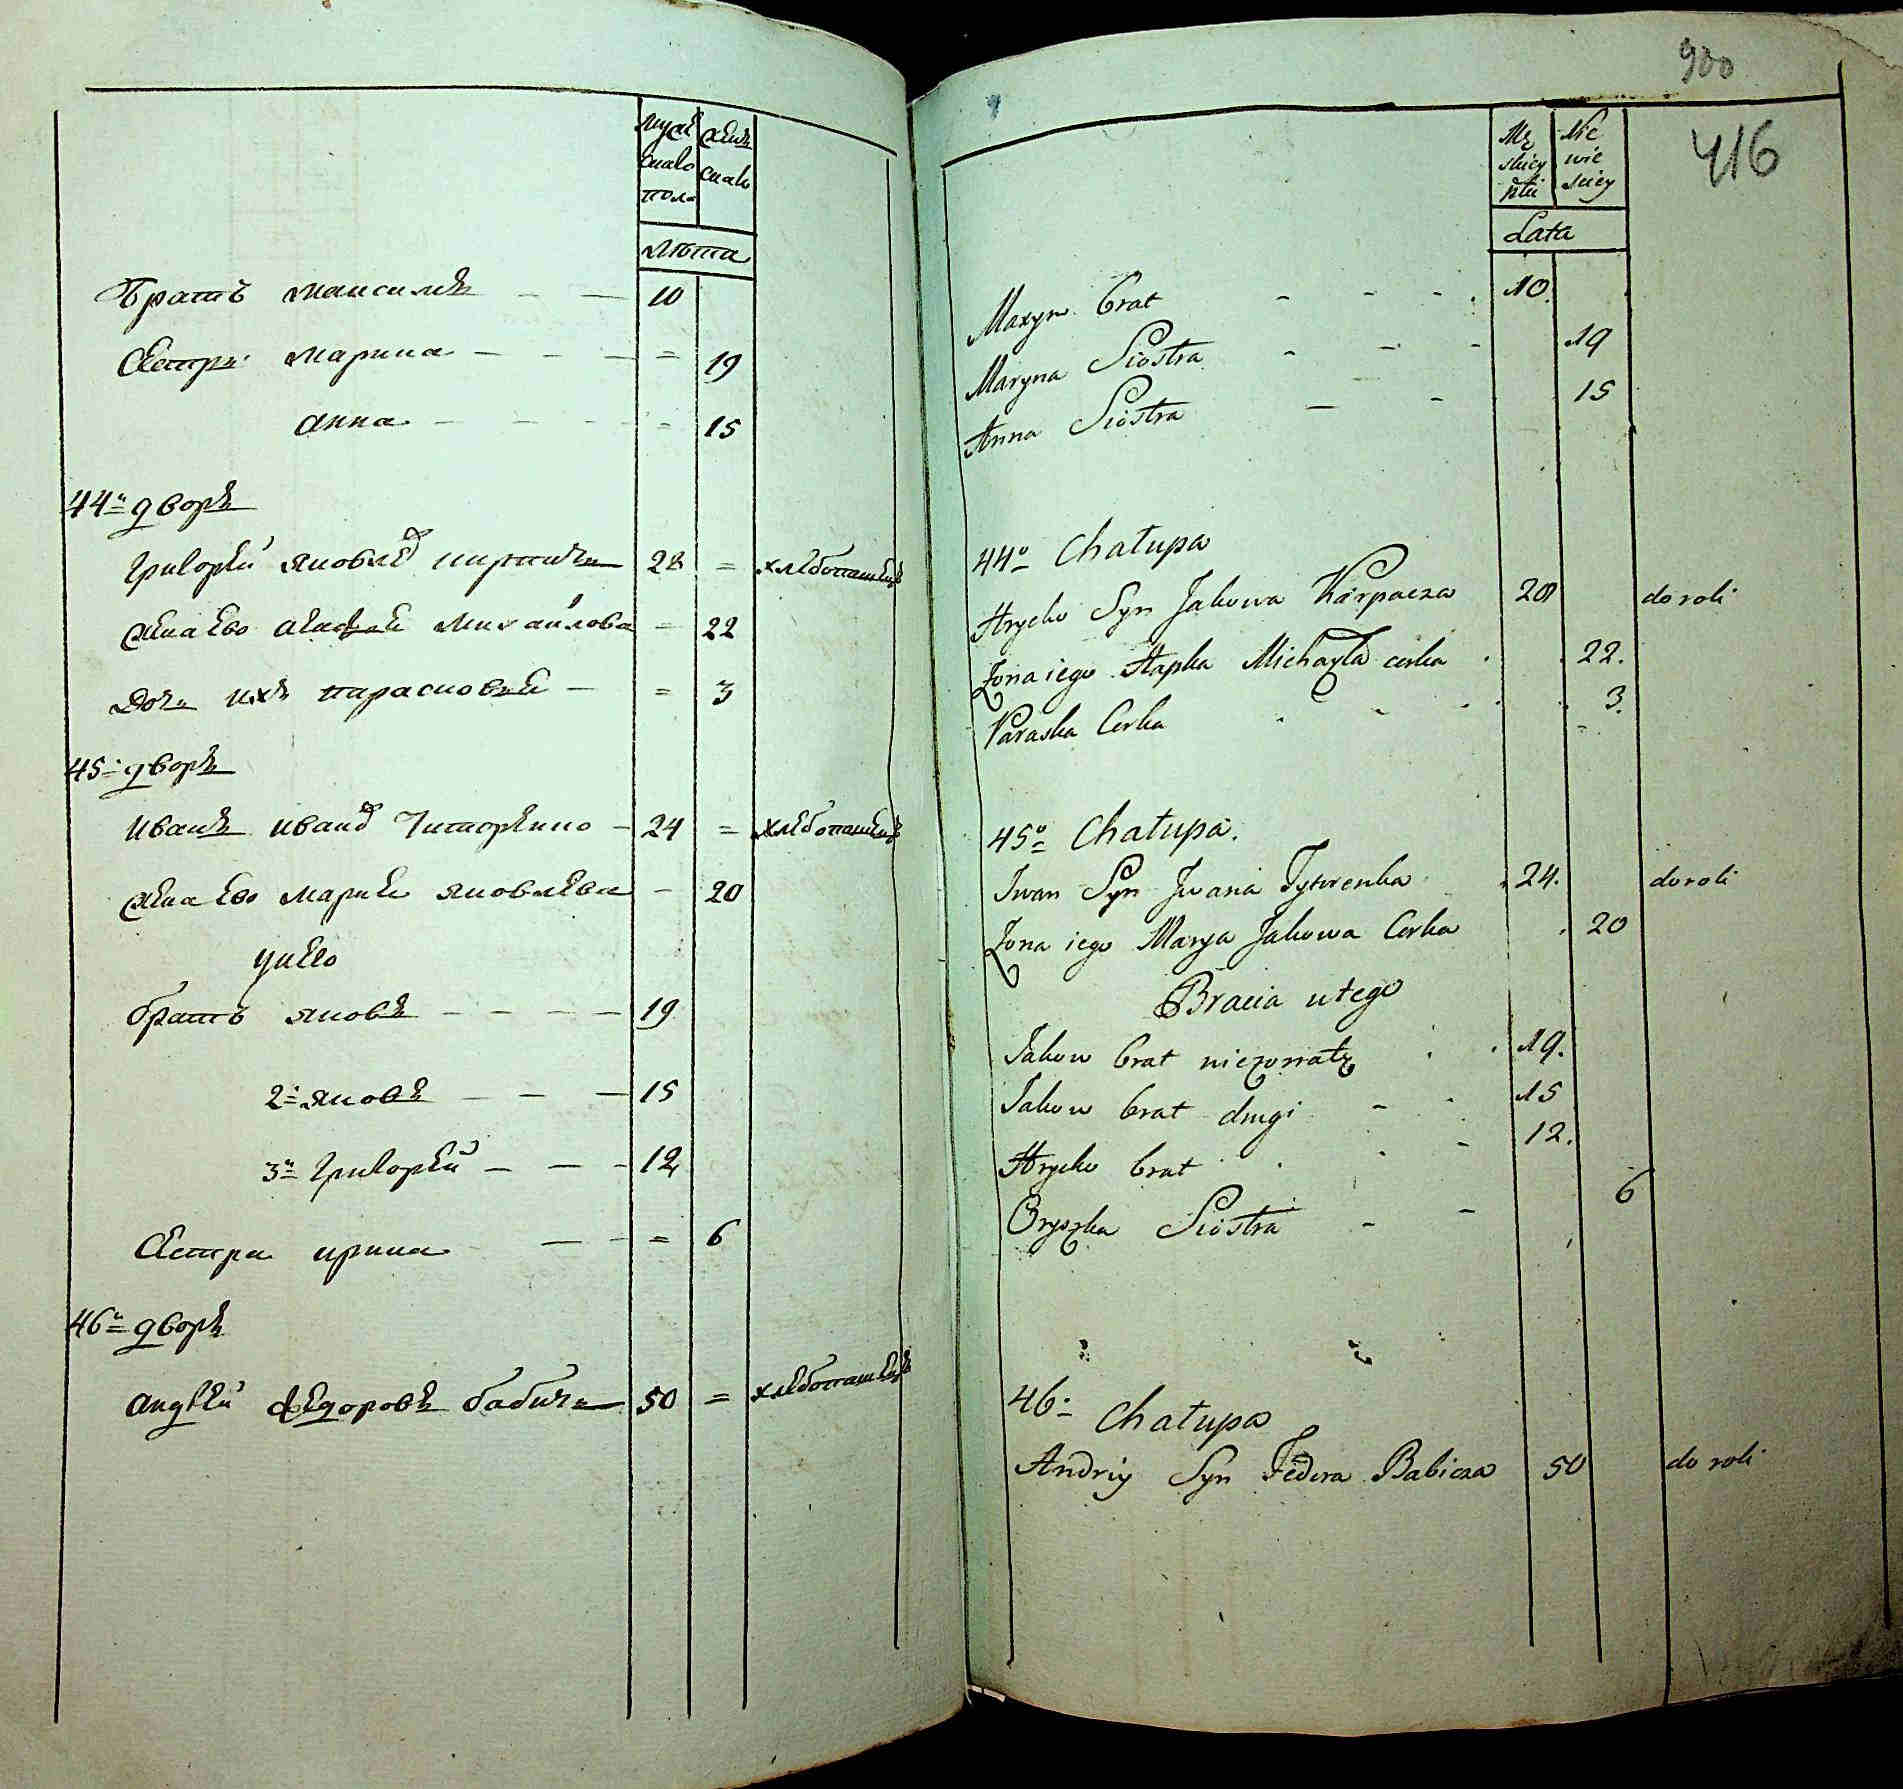 мужеска пола
женска
лѣта
братъ максимъ - - 10
сестры марина - - - = 19
анна - - - = 15
44й дворъ
григорей яковлев карпачъ 28 = хлебопашецъ
жена ево агафия михайлова = 22
дочь ихъ парасковея - = 3
45й дворъ
иванъ иванов титоренко - 24 = хлебопашецъ
жена ево мария яковлева - 20
унево
братъ яковъ - - - - 19
2й яковъ - - - 15
3й григорей - - - 12
сестра ирина - - = 6
46й дворъ
андрей федоровъ бабичъ 50 = хлебопашецъ
900
416
Męskiey płci
Niewieściey
Lata
Maxym brat - - - 10.
Maryna Siostra - - - 19
Anna Siostra - - 15
44o Chałupa
Hrycko Syn Jakowa Karpacza 28 do roli
Żona iego Hapka Michayła corka 22.
Paraska Corka - - - 3.
45o Chałupa.
Iwan Syn Iwana Tytorenka 24. do roli
Żona iego Marya Jakowa Corka 20
Bracia u tego
Jakow brat nieżonaty 19.
Jakow brat drugi - - 15
Hrycko brat - 12.
Oryszka Siostra - - 6
46o Chałupa
Andriy Syn Fedora Babicza 50 do roli